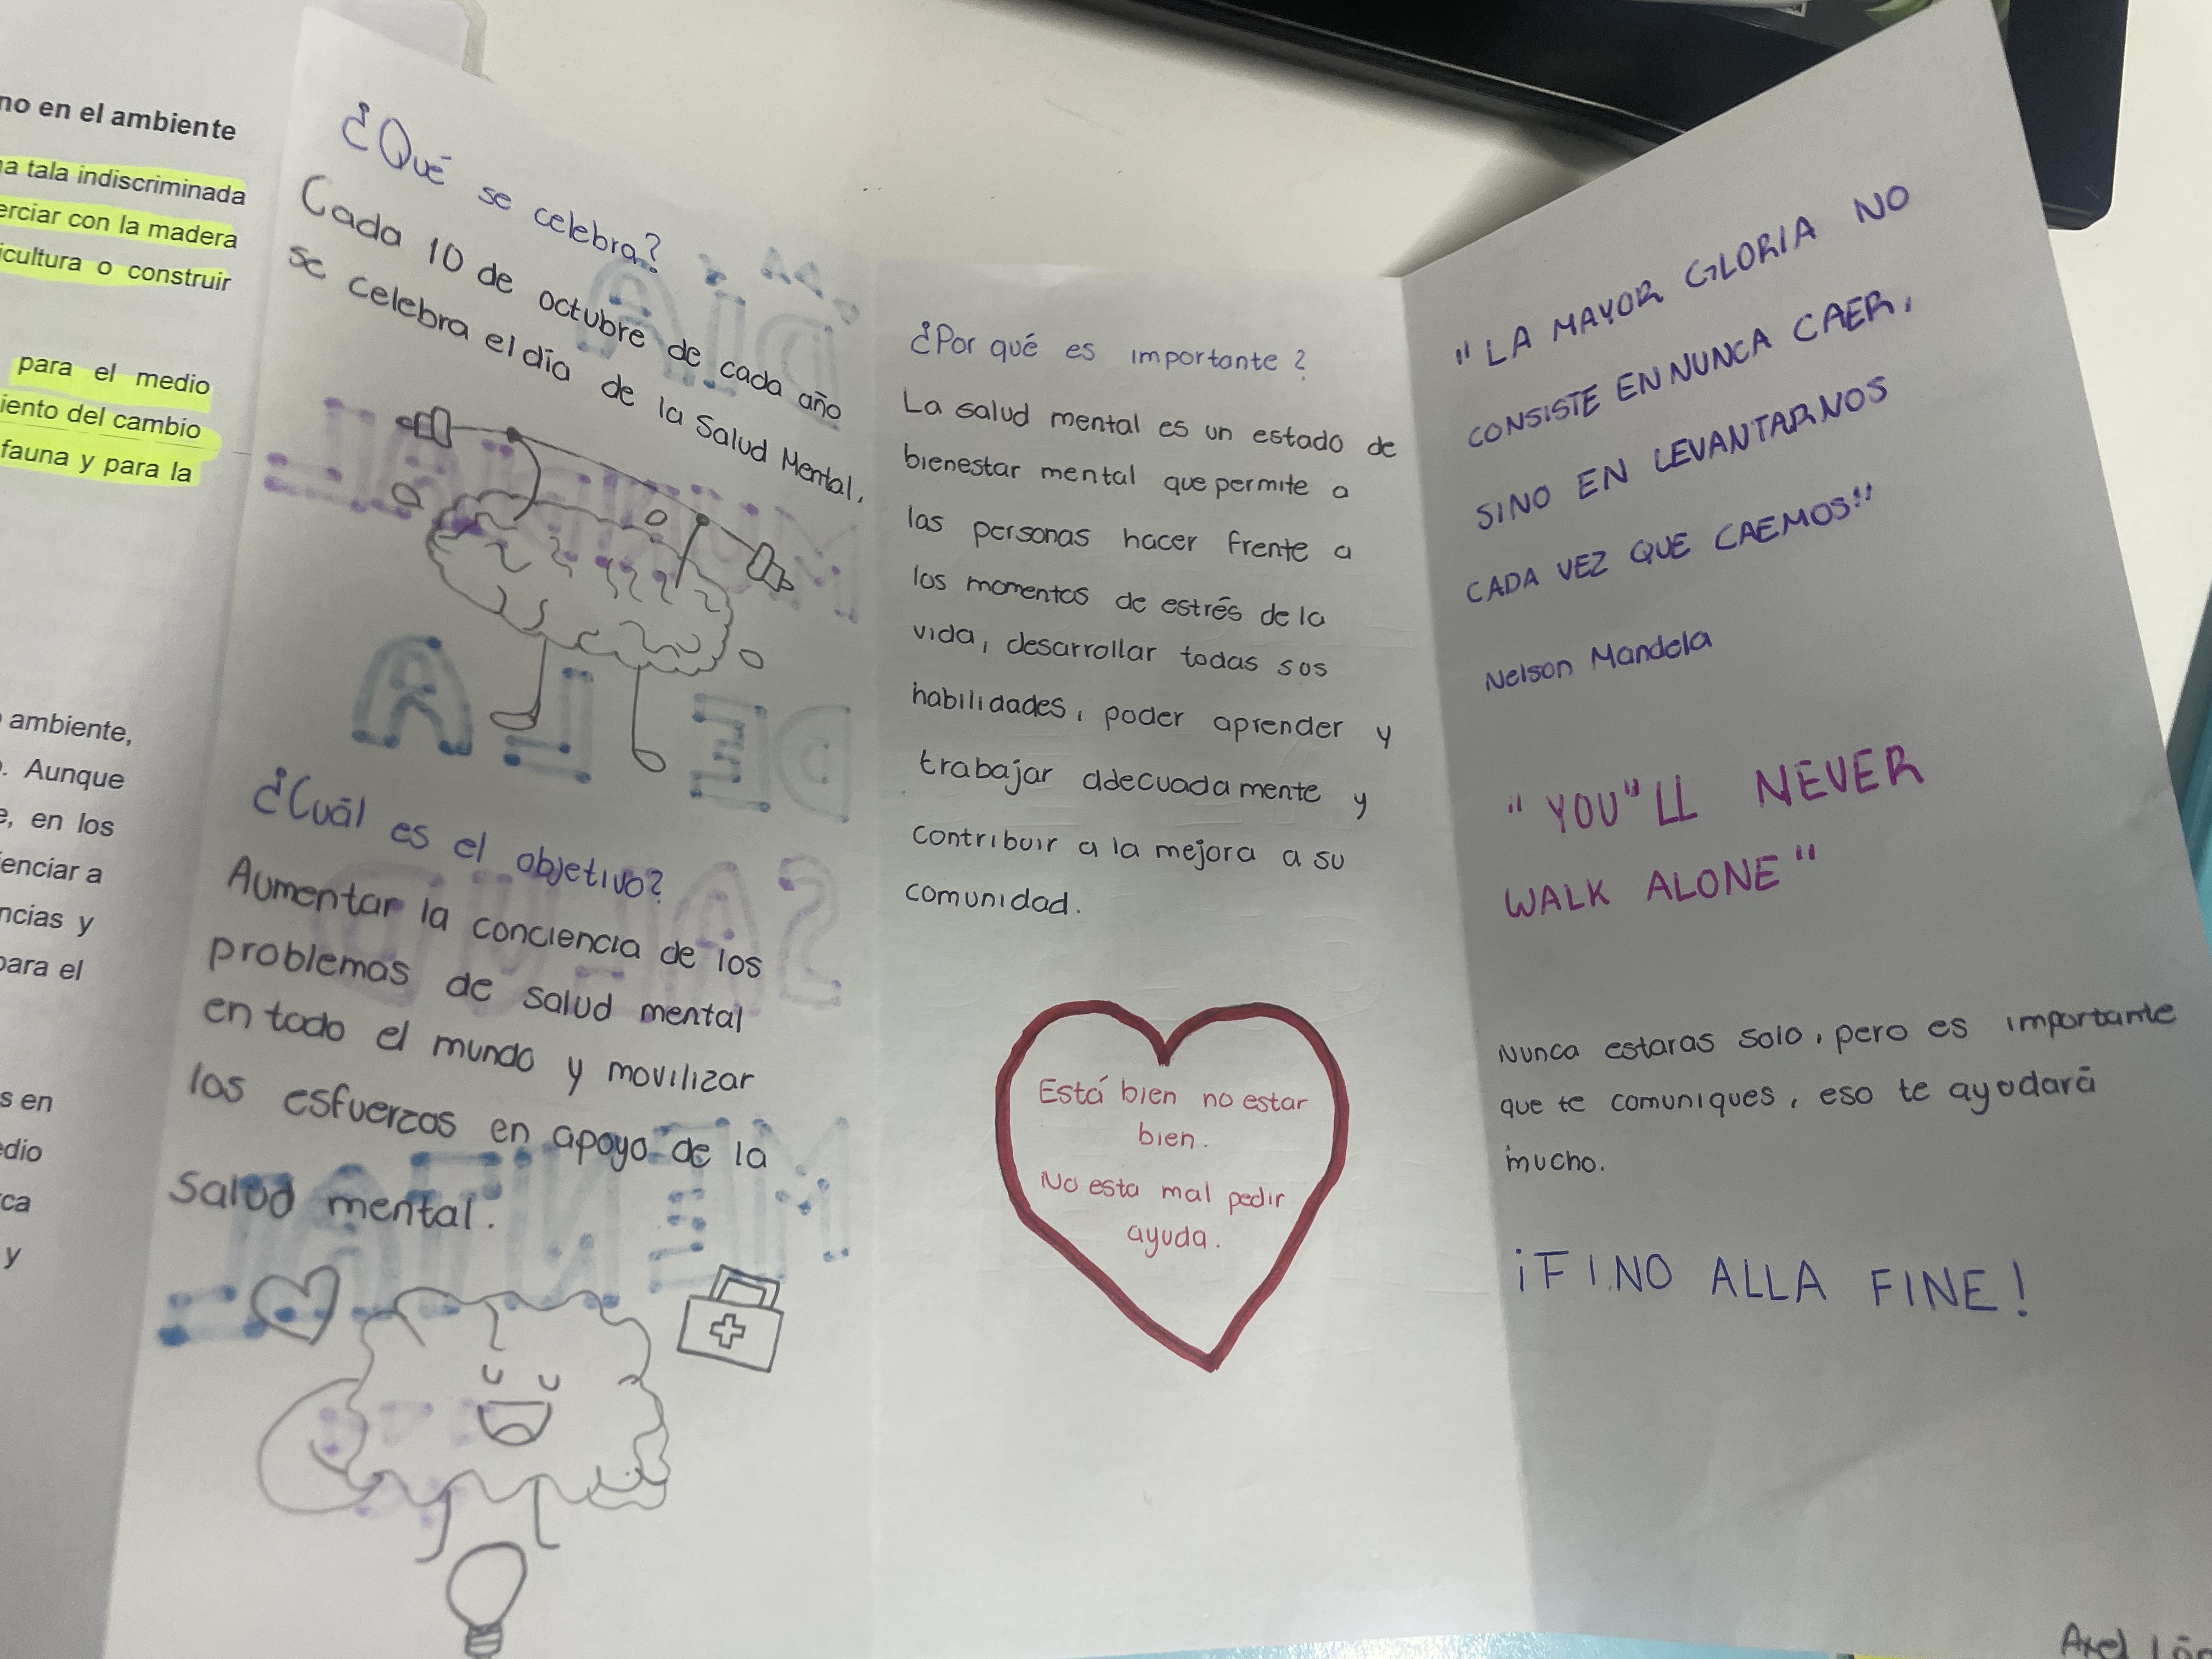 no en el ambiente
a tala indiscriminada
erciar con la madera
icultura o construir
para el medio
iento del cambio
fauna y para la
ambiente,
. Aunque
e, en los
enciar a
ncias y
para el
s en
edio
ca
y
¿Qué se celebra?
Cada 10 de octubre de cada año
se celebra el día de la Salud Mental.
¿Cuál es el objetivo?
Aumentar la conciencia de los
problemas de salud mental
en todo el mundo y movilizar
los esfuerzos en apoyo de la
salud mental.
DIA
MUNDIAL
DE LA
SALUD
MENTAL
¿Por qué es importante?
La salud mental es un estado de
bienestar mental que permite a
las personas hacer frente a
los momentos de estrés de la
vida, desarrollar todas sus
habilidades, poder aprender y
trabajar adecuadamente y
contribuir a la mejora a su
comunidad.
Está bien no estar
bien.
No esta mal pedir
ayuda.
"LA MAYOR GLORIA NO
CONSISTE EN NUNCA CAER,
SINO EN LEVANTARNOS
CADA VEZ QUE CAEMOS"
Nelson Mandela
"YOU"LL NEVER
WALK ALONE"
Nunca estaras solo, pero es importante
que te comuniques, eso te ayudará
mucho.
¡FINO ALLA FINE!
Axel